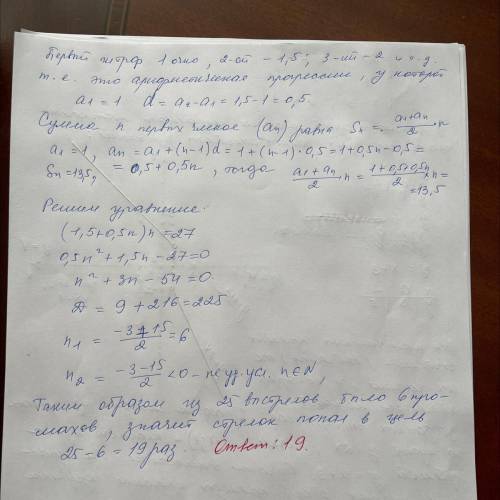 Первый штраф 1 очко, 2-ой - 1,5; 3-ий - 2 и т.д.
т.е. это арифметическая прогрессия, у которой
a₁ = 1 d = a₂ - a₁ = 1,5 - 1 = 0,5.
Сумма n первых членов (an) равна Sn = (a₁+an)/2 · n
a₁ = 1, an = a₁ + (n-1)d = 1 + (n-1)·0,5 = 1 + 0,5n - 0,5 =
Sn = 13,5, = 0,5 + 0,5n, тогда (a₁+an)/2 · n = (1+0,5+0,5n)/2 · n =
= 13,5
Решим уравнение:
(1,5 + 0,5n)n = 27
0,5n² + 1,5n - 27 = 0
n² + 3n - 54 = 0
Д = 9 + 216 = 225
n₁ = (-3+15)/2 = 6
n₂ = (-3-15)/2 < 0 - не уд. усл. n∈N,
Таким образом из 25 выстрелов было 6 про-
махов, значит стрелок попал в цель
25 - 6 = 19 раз. Ответ: 19.